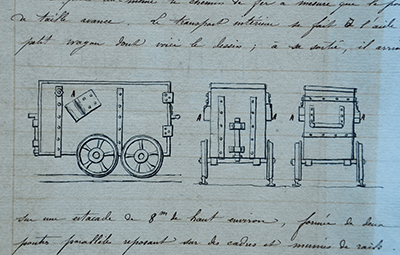 même le chemin de fer à mesure que le
de taille avance. Le transport intérieur se fait à l'aide
petit wagon dont voici le dessin ; à sa sortie, il
A A A A
sur une estacade de 8m de haut environ, formée de deux
poutres parallèles reposant sur des cadres et munies de rails.